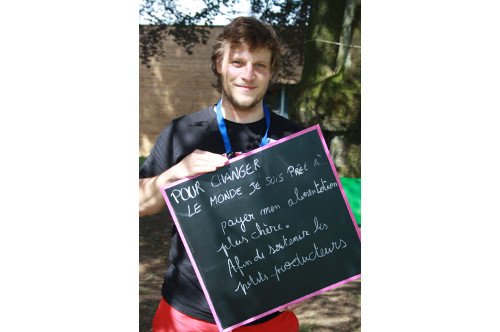 POUR CHANGER
LE MONDE JE SUIS PRÊT A
payer mon alimentation
plus chère.
Afin de soutenir les
petits producteurs